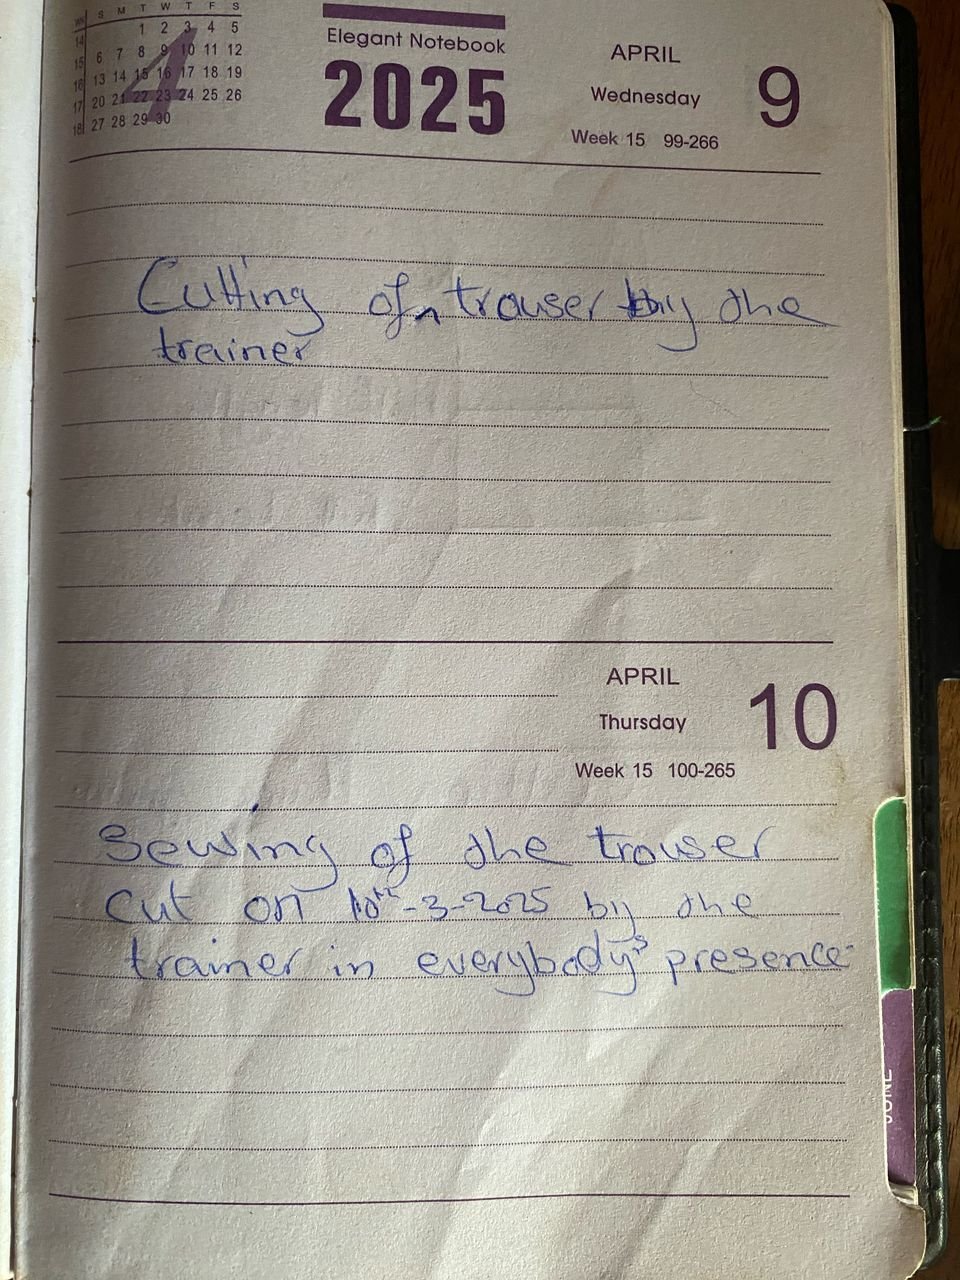 WK S M T W T F S
14 1 2 3 4 5
15 6 7 8 9 10 11 12
16 13 14 15 16 17 18 19
17 20 21 22 23 24 25 26
18 27 28 29 30
4
Elegant Notebook
2025
APRIL
Wednesday
Week 15 99-266
9
Cutting of ^ trouser by the
trainer
APRIL
Thursday
Week 15 100-265
10
Sewing of the trouser
cut on 10th-3-2025 by the
trainer in everybody's presence
JUNE